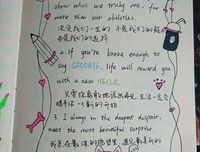 show what we truly are, far
more than our abilities.
决定我们一生的,不是我们的能力
而是我们的选择
2. If you're brave enough to
say GOODBYE, life will reward you
with a new HELLO.
只要你勇敢地说出再见,生活一定会
赐予你一个新的开始
3. I always in the deepest despair,
meet the most beautiful surprise
我总在最深的绝望里,遇见最美的